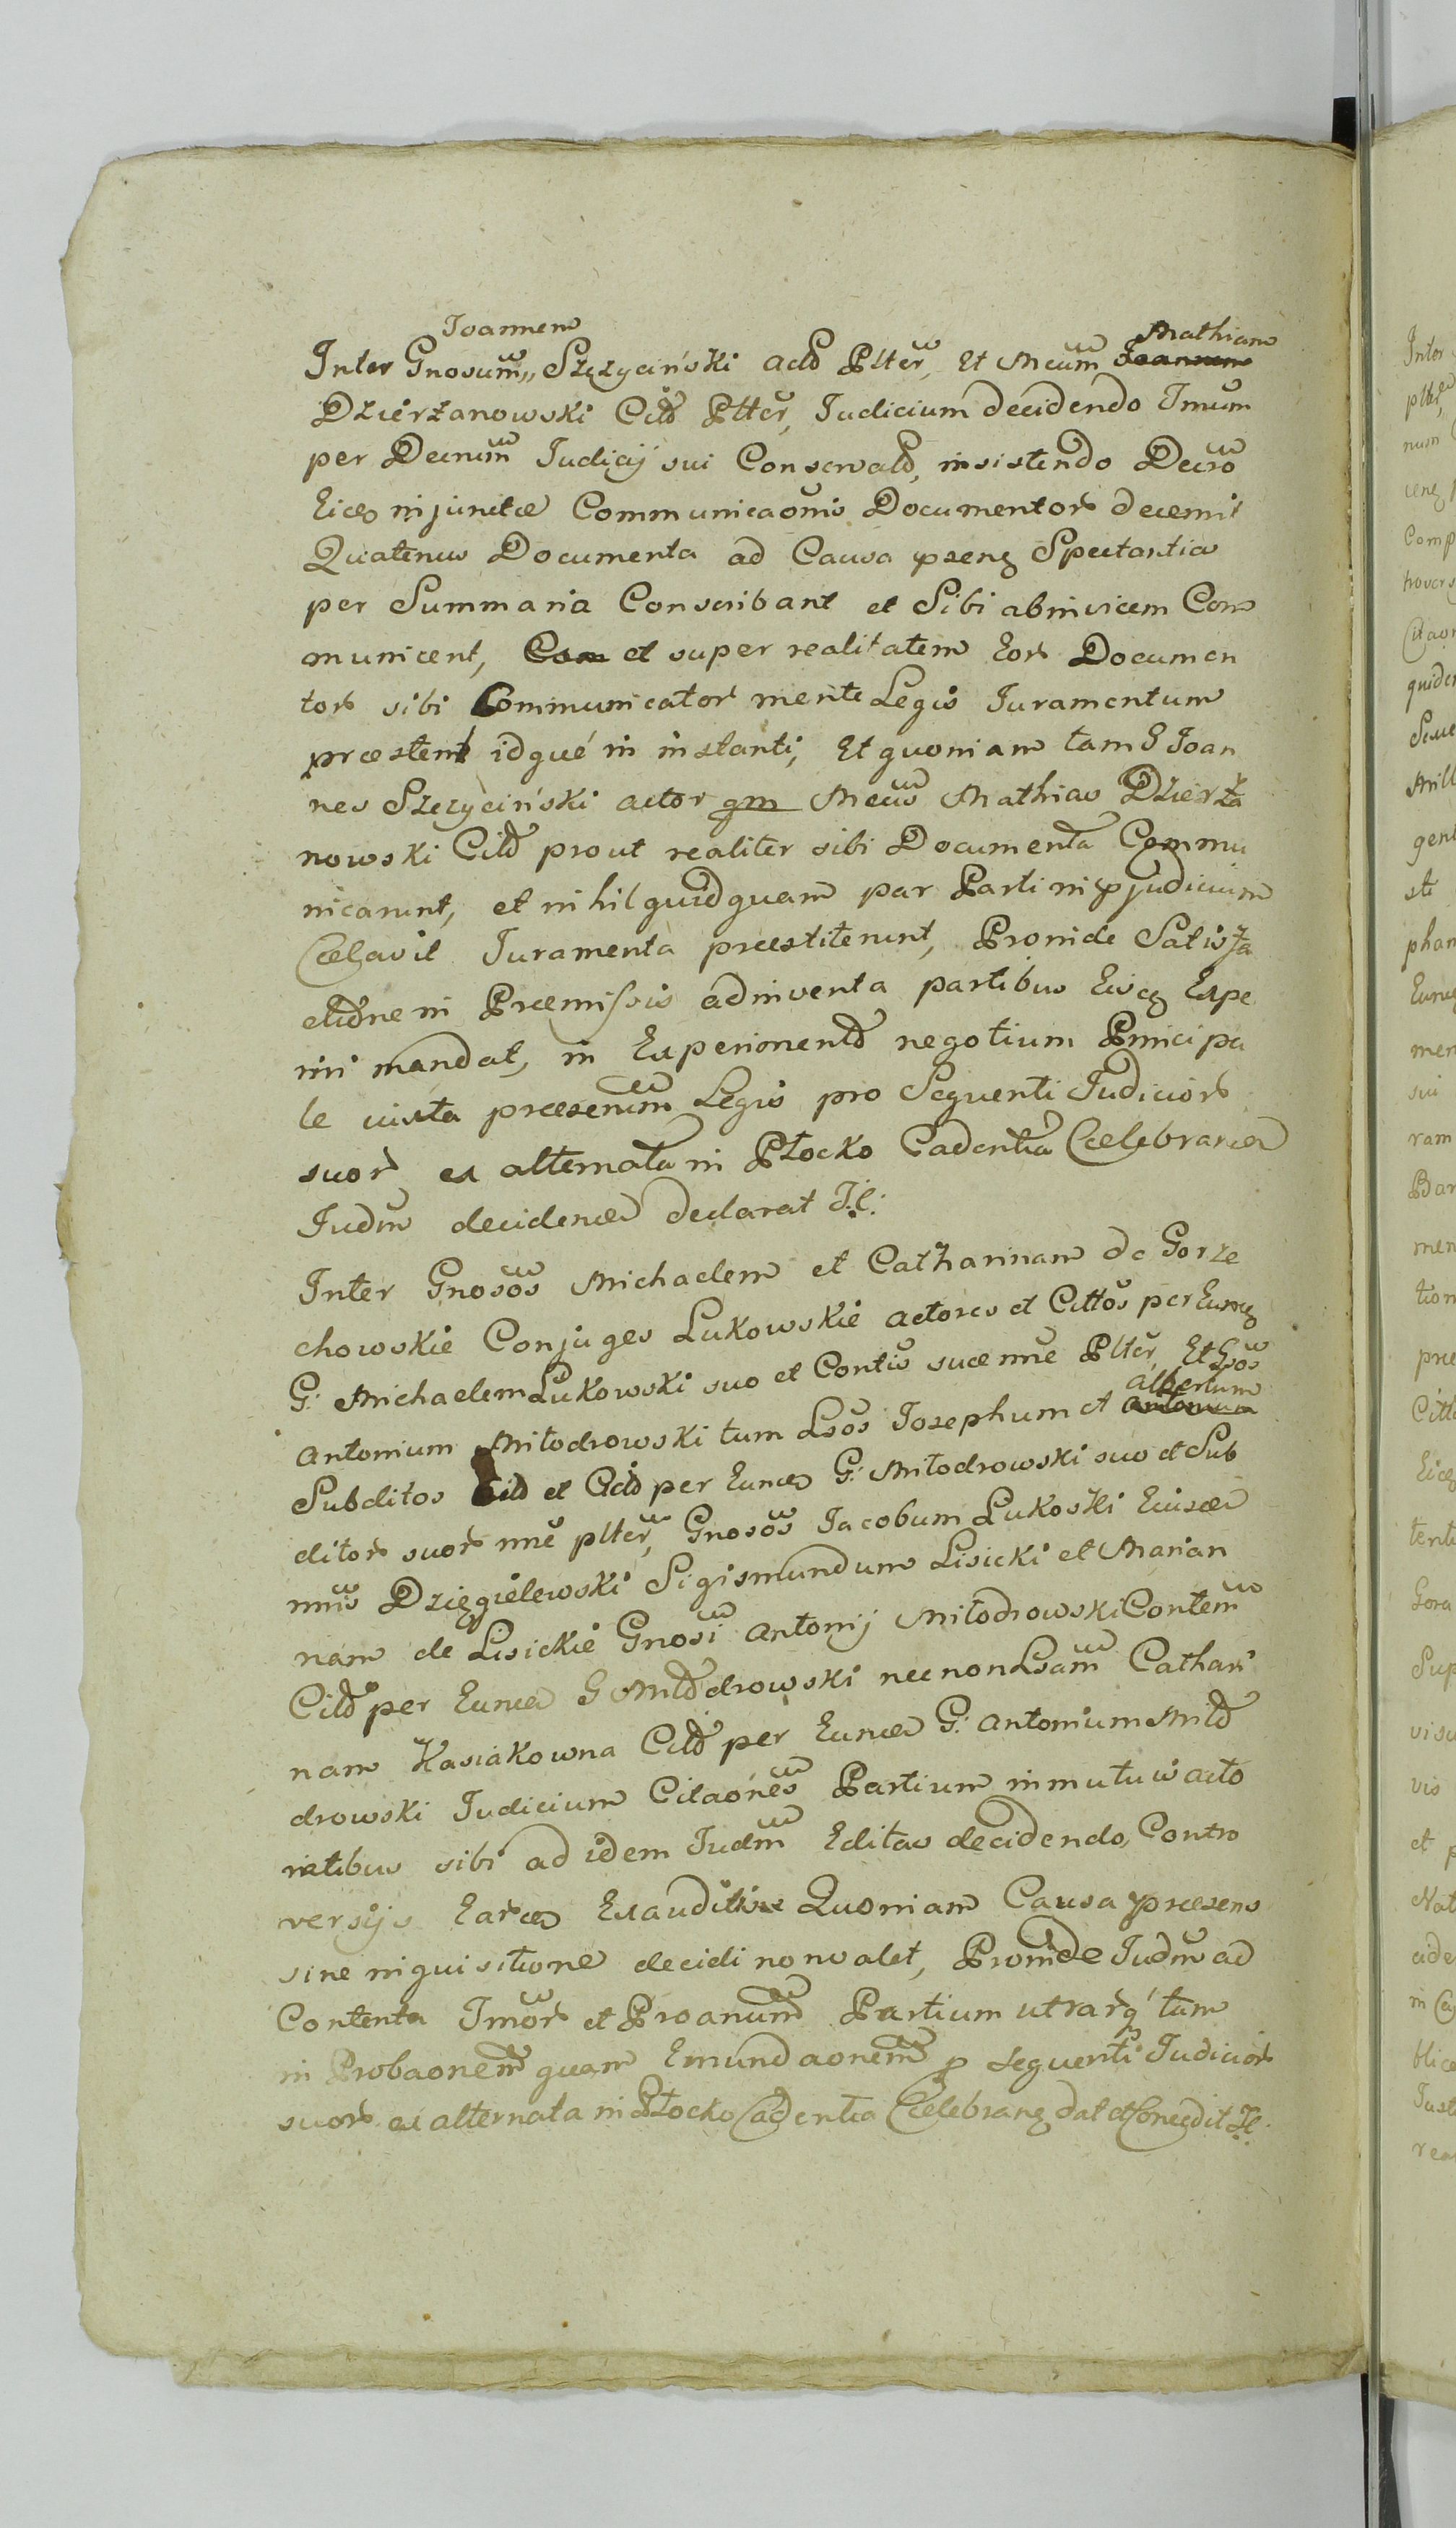 Joannem
Inter Gnosum,, Szczyciński Actō Plter, Et Mcum Mathiam Joannem
Dzierzanowski Citō Plter, Judicium decidendo Tmum
per Decrum Judicij sui Conservatō, insistendo Decro
Eicq injunctæ Communicaonis Documentor decernit
Quatenus Documenta ad Causa præsenq Spectantia
per Summaria Conscribant et Sibi abinvicem Com
municent, Com et super realitatem Eor Documen
tor sibi Communicator mente Legis Juramentum
præstent idqué in instanti, Et quoniam tam G Joan
nes Szczyciński actor qm Mcus Mathias Dzierża
nowski Citō prout realiter sibi Documenta Commu
nicarunt, et nihil quidquam par Parti in pjudicium
Cælavit Juramenta præstiterunt, Proinde Satisfa
ctiōne in Præmissis adinventa partibus Eiscq Expe
riri mandat, in Experimentō negotium Principa
le iuxta præsenum Legis pro Sequenti Judicior
suor ex alternata in Płocko Cadentia Cælebranā
Judm decidenā declarat J.l:
Inter Gnosos Michaelem et Catharinam de Gorze
chowskie Conjuges Lukowskie actores et Cittos per Eunq
G: Michaelem Lukowski suo et Contis suæ nne Plter, Et Gsos
Antonium Miłodrowski tum Lsos Josephum et Albertum Antonium
Subditos Citō et Citō per Eunā G: Miłodrowski suo et Sub
ditor suor nne plter, Gnosos Jacobum Lukoski Eiusā
nnis Dzięgielewski Sigismundum Lisicki et Marian
nam de Lisickie Gnosi Antonij Miłodrowski Contem
Citō per Eunā G Miłodrowski necnon Lsam Cathari
nam Kasiakowna Citō per Eunā G: Antonium Miło
drowski Judicium Citaones Partium in mutuis acto
ratibus sibi ad idem Judm Editas decidendo, Contro
versijs Earā Exauditis Quoniam Causa præsens
sine inquisitione decidi non valet, Proinde Judm ad
Contenta Tmor et Proanum Partium utrarq' tam
in Probaonem quam Emundaonem p sequenti Judicior
suor ex alternata in Płocko Cadentia Cælebranq dat et Concedit J.l.